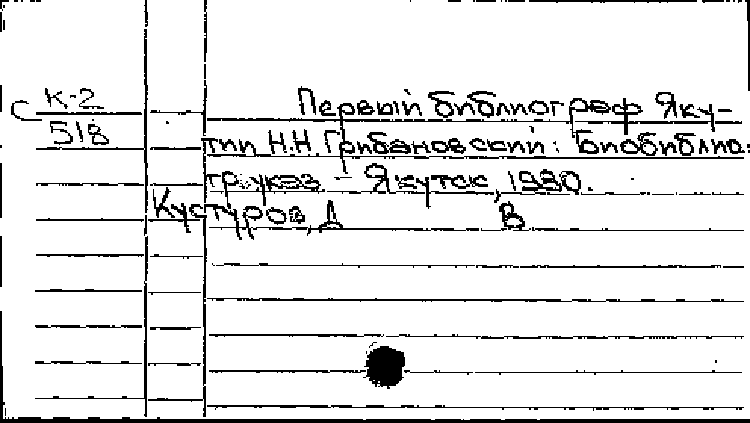 С К-2
518
Первый библиограф Яку-
тии Н.Н. Грибановский: Биобиблио-
гр. указ. - Якутск, 1980.
Кустуров, Д В